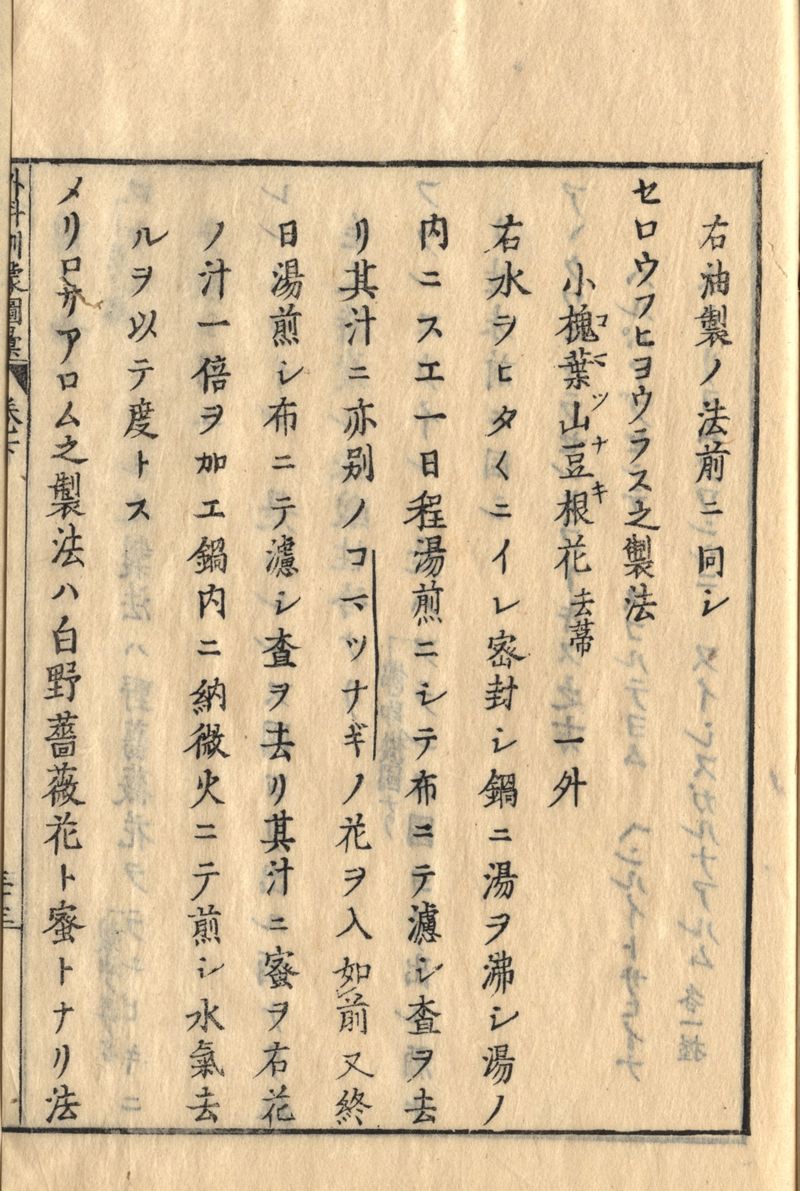 右油製ノ法前ニ同シ
セロウフヒヨウラス之製法
小槐葉山豆根花 去蔕 一外
コマツナキ
右水ヲヒタ〱ニイレ密封シ鍋ニ湯ヲ沸シ湯ノ
内ニスエ一日程湯煎ニシテ布ニテ濾シ査ヲ去
リ其汁ニ亦別ノコマツナギノ花ヲ入如前又終
日湯煎シ布ニテ濾シ査ヲ去リ其汁ニ蜜ヲ右花
ノ汁一倍ヲ加エ鍋内ニ納微火ニテ煎シ水氣去
ルヲ以テ度トス
メリロサアロム之製法ハ白野薔薇花ト蜜トナリ法
外科訓蒙圖彙 卷下